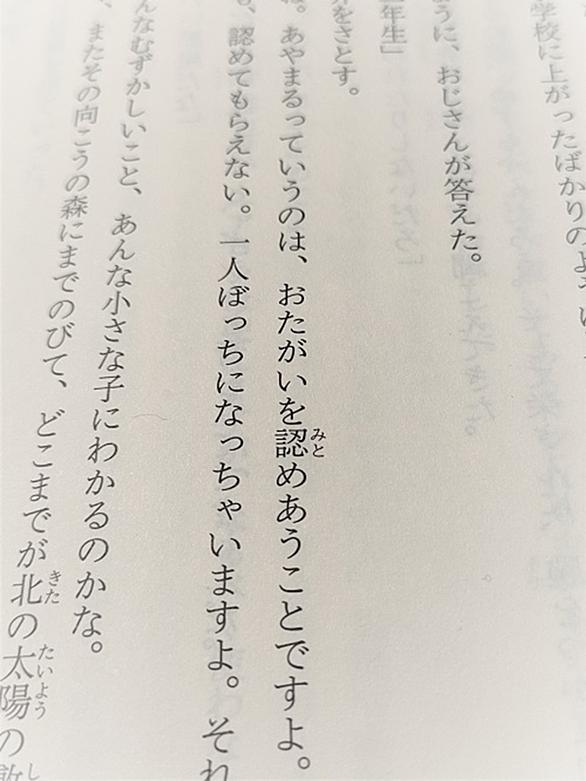 学校に上がったばかりのよ
うに、おじさんが答えた。
年生」
をさとす。
。あやまるっていうのは、おたがいを認めあうことですよ。
も、認めてもらえない。一人ぼっちになっちゃいますよ。それ
んなむずかしいこと、あんな小さな子にわかるのかな。
、またその向こうの森にまでのびて、どこまでが北の太陽の